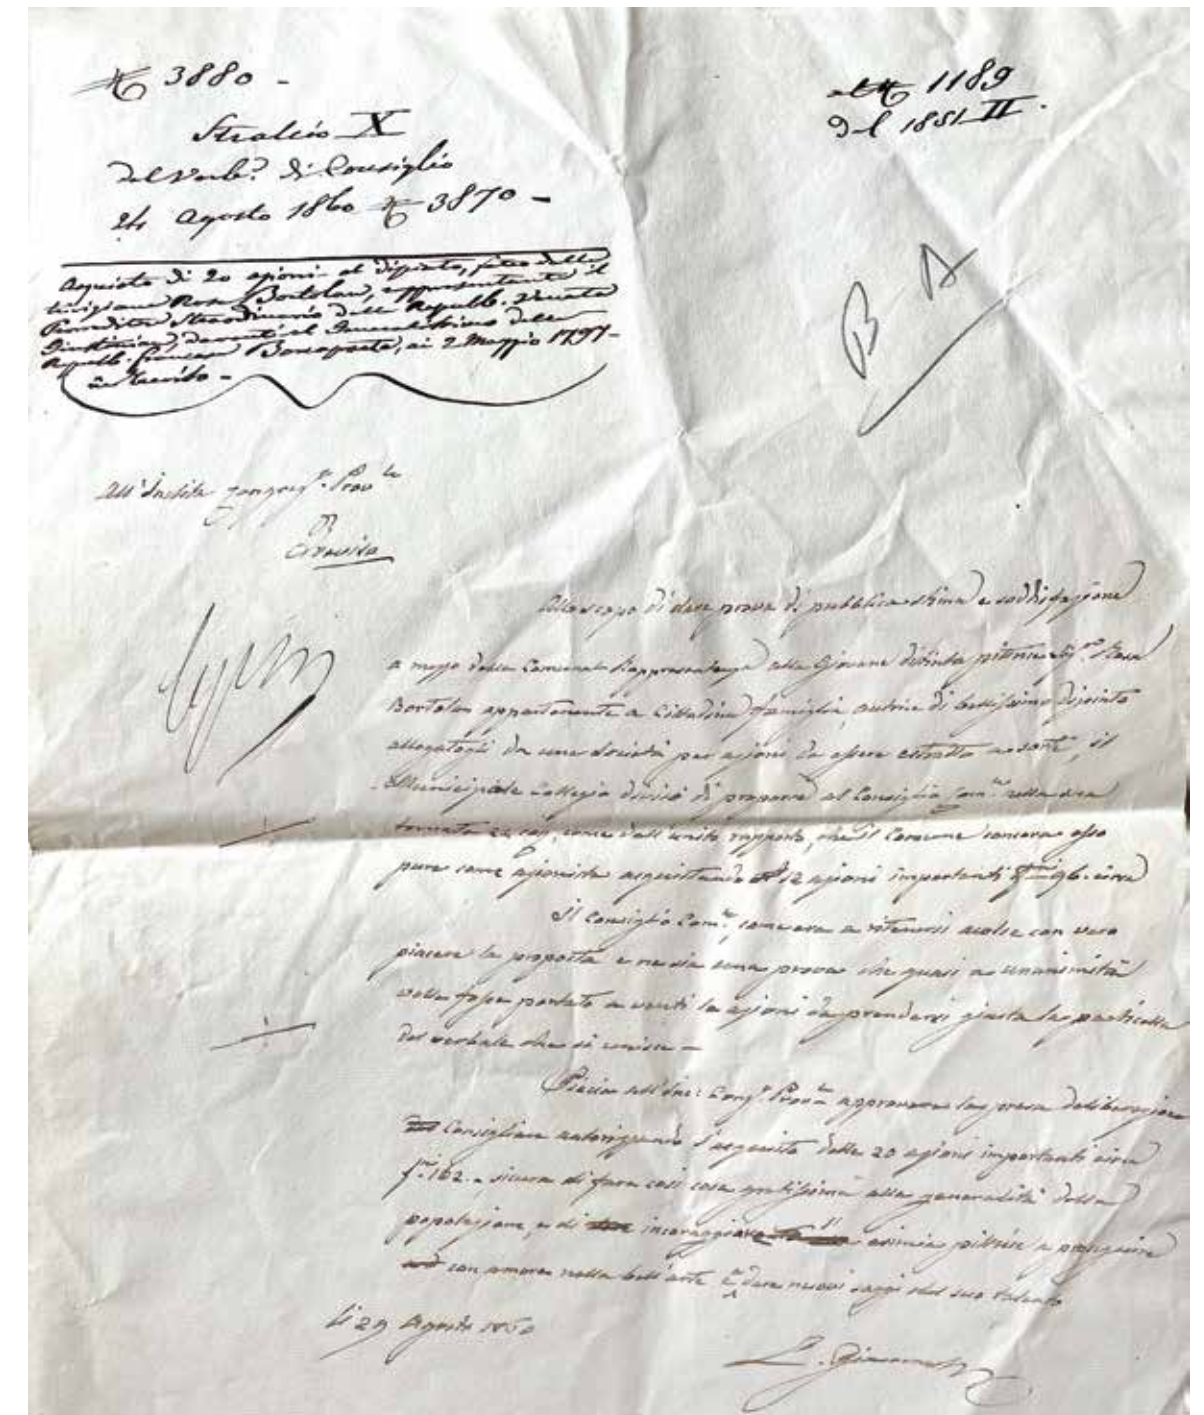 N 3880 -
Stralcio X
del Verb.e di Consiglio
24 Agosto 1860 N 3870 -
al N 1189
del 1851 II.
Acquisto di 20 azioni al dipinto, fatto dalla
trivigiana Rosa Bortolan, rappresentante il
Provveditor Straordinario della Repubb. Veneta
Giustiniani davanti al Generalissimo della
Repubb. francese Bonaparte, ai 2 Maggio 1797 -
in Treviso -
B A
All' Inclita Congreg.e Prov.le
Treviso
Allo scopo di dare prova di pubblica stima e soddisfazione
a mezzo della Comunale Rappresentanza alla Giovane distinta pittrice Sig.ra Rosa
Bortolan appartenente a Cittadina famiglia, autrice di bellissimo dipinto
da una Società per azioni da essere estratto a sorte, il
Municipale Collegio divisò di proporre al Consiglio Com.le nella sua
tornata come dall' unito rapporto, che il Comune concorra esso
pure come azionista acquistando N 12 azioni importanti 96 circa
Il Consiglio Com.le, come era a ritenersi accolse con vero
piacere la proposta e ne sia una prova che quasi a unanimità
volle fosse portato a venti le azioni da prendersi giusta la particella
del verbale che si unisce -
Piaccia all' Inc: Cong.e Prov.le approvare la presa deliberazione
Consigliare autorizzando l'acquisto delle 20 azioni importanti circa
f.ni 162. - sicura di fare così cosa gratissima alla generalità della
popolazione, e di incoraggiare l' esimia pittrice a proseguire
con amore nella bell' arte e dare nuovi saggi del suo talento
Li 29 Agosto 1860